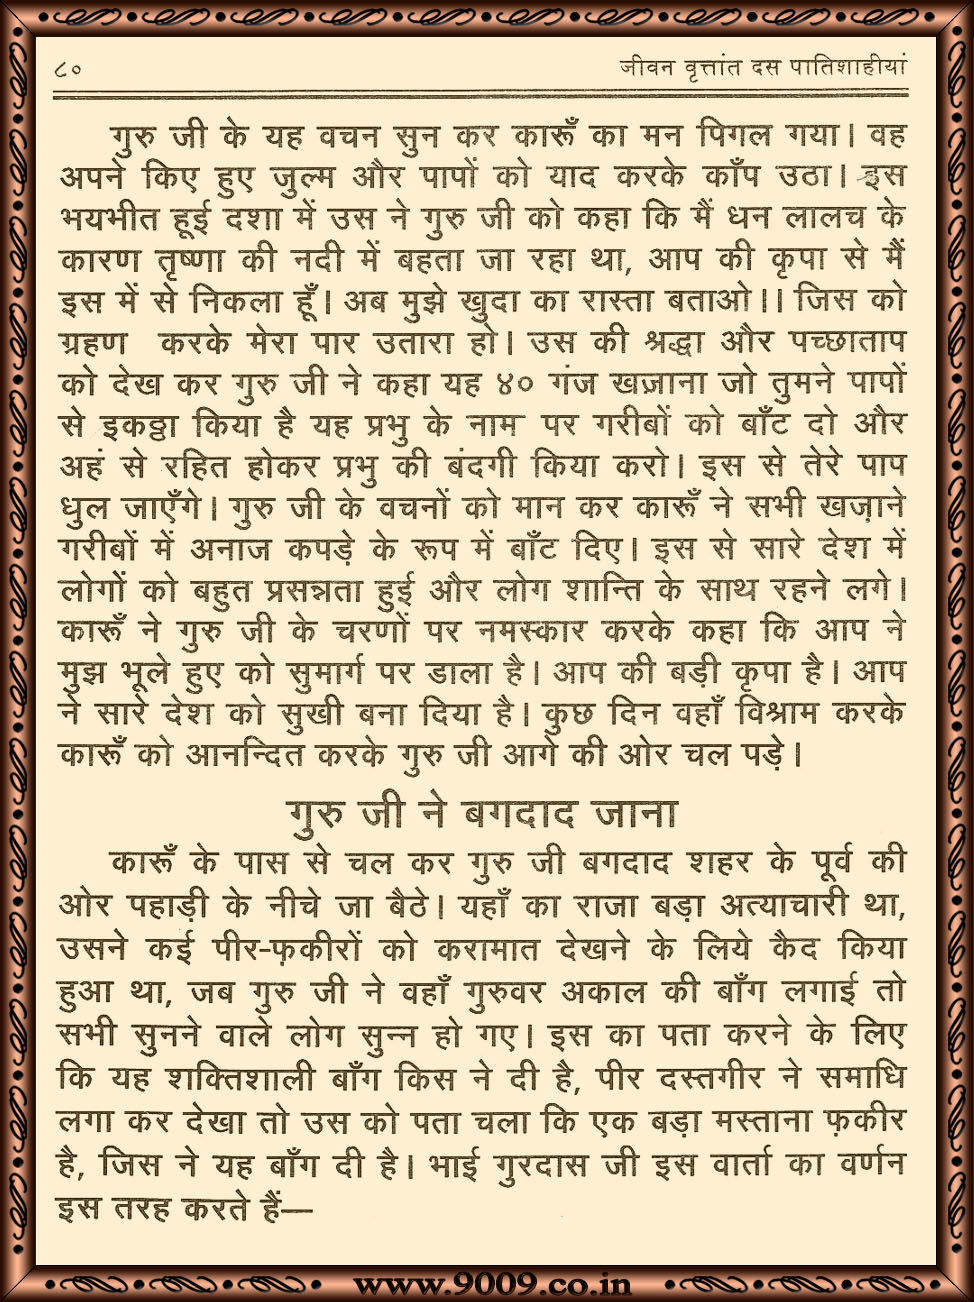 ८०
जीवन वृत्तांत दस पातिशाहीयां
गुरु जी के यह वचन सुन कर कारूँ का मन पिगल गया। वह
अपने किए हुए जुल्म और पापों को याद करके काँप उठा। इस
भयभीत हूई दशा में उस ने गुरु जी को कहा कि मैं धन लालच के
कारण तृष्णा की नदी में बहता जा रहा था, आप की कृपा से मैं
इस में से निकला हूँ। अब मुझे खुदा का रास्ता बताओ।। जिस को
ग्रहण करके मेरा पार उतारा हो। उस की श्रद्धा और पच्छाताप
को देख कर गुरु जी ने कहा यह ४० गंज खज़ाना जो तुमने पापों
से इकठ्ठा किया है यह प्रभु के नाम पर गरीबों को बाँट दो और
अहं से रहित होकर प्रभु की बंदगी किया करो। इस से तेरे पाप
धुल जाएँगे। गुरु जी के वचनों को मान कर कारूँ ने सभी खज़ाने
गरीबों में अनाज कपड़े के रूप में बाँट दिए। इस से सारे देश में
लोगों को बहुत प्रसन्नता हुई और लोग शान्ति के साथ रहने लगे।
कारूँ ने गुरु जी के चरणों पर नमस्कार करके कहा कि आप ने
मुझ भूले हुए को सुमार्ग पर डाला है। आप की बड़ी कृपा है। आप
ने सारे देश को सुखी बना दिया है। कुछ दिन वहाँ विश्राम करके
कारूँ को आनन्दित करके गुरु जी आगे की ओर चल पड़े।
गुरु जी ने बगदाद जाना
कारूँ के पास से चल कर गुरु जी बगदाद शहर के पूर्व की
ओर पहाड़ी के नीचे जा बैठे। यहाँ का राजा बड़ा अत्याचारी था,
उसने कई पीर-फ़कीरों को करामात देखने के लिये कैद किया
हुआ था, जब गुरु जी ने वहाँ गुरुवर अकाल की बाँग लगाई तो
सभी सुनने वाले लोग सुन्न हो गए। इस का पता करने के लिए
कि यह शक्तिशाली बाँग किस ने दी है, पीर दस्तगीर ने समाधि
लगा कर देखा तो उस को पता चला कि एक बड़ा मस्ताना फ़कीर
है, जिस ने यह बाँग दी है। भाई गुरदास जी इस वार्ता का वर्णन
इस तरह करते हैं—
www.9009.co.in